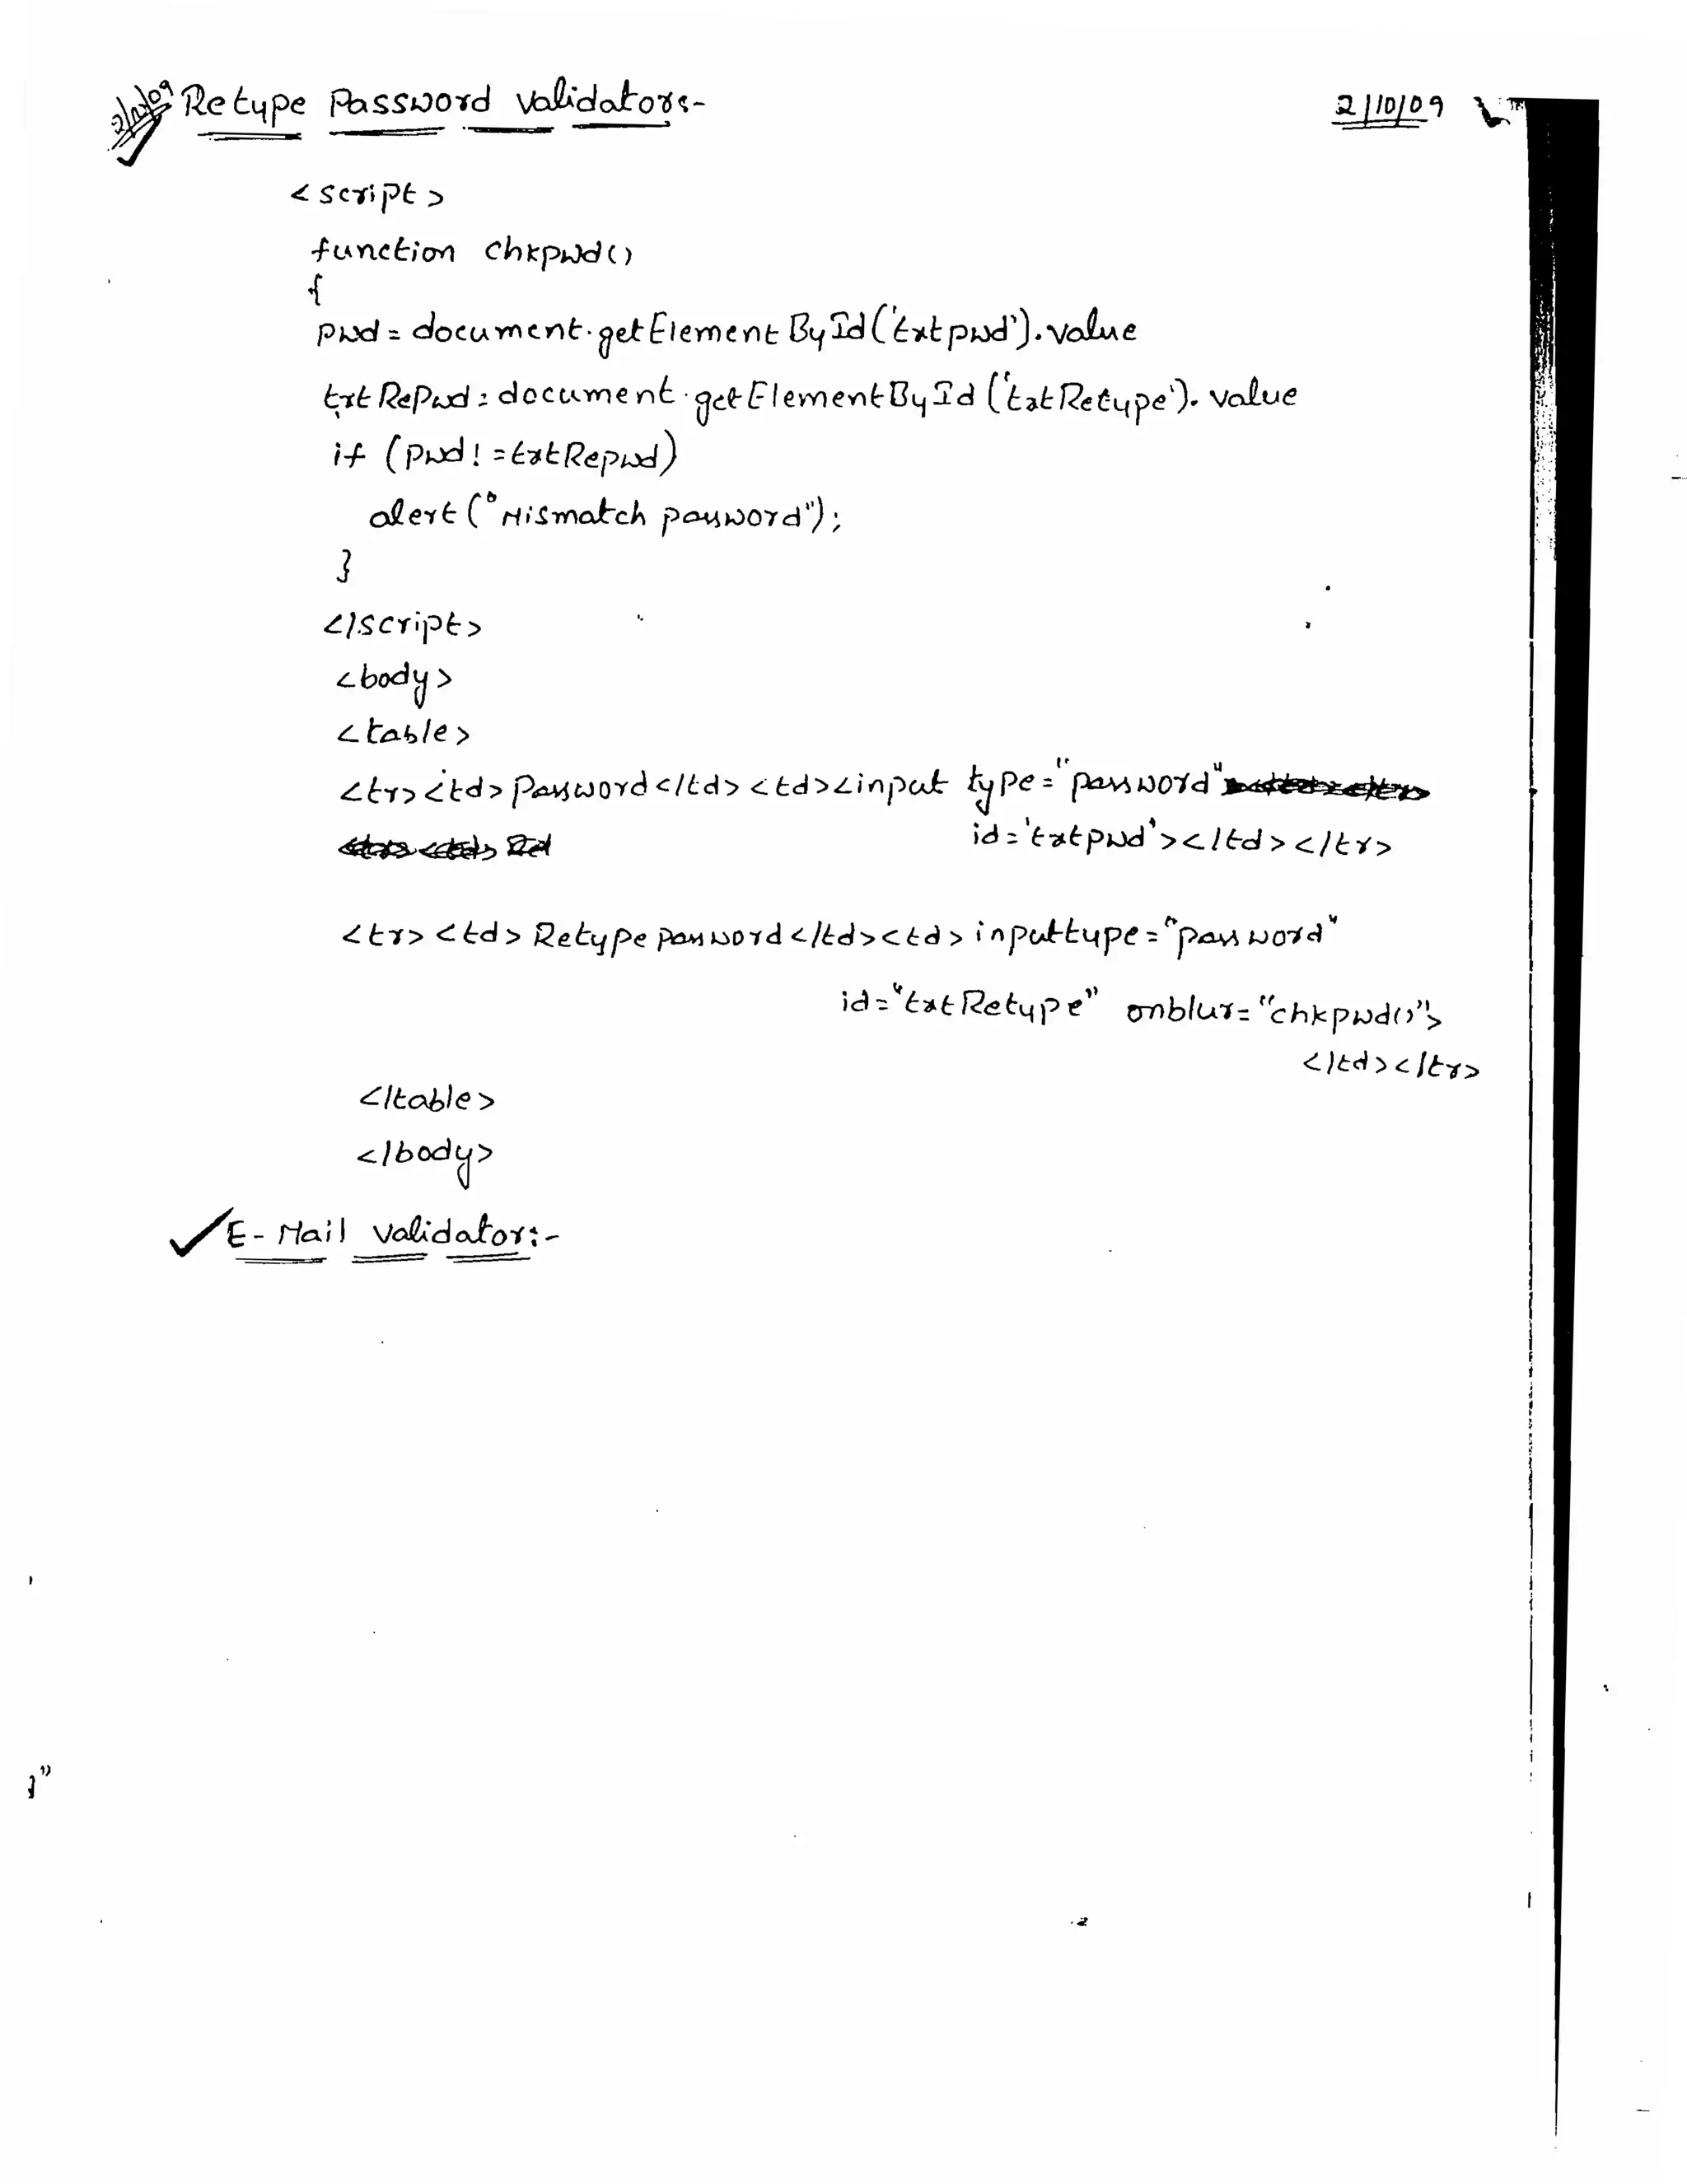 Retype Password validator:- 2/10/09
2/10/09
<script>
function chkpwd()
{
pwd = document.getElementById('txtpwd').value
txtRePwd = document.getElementById('txtRetype').value
if (pwd != txtRepwd)
alert("Mismatch password");
}
</script>
<body>
<table>
<tr><td>Password</td><td><input type="password"
id='txtpwd'></td></tr>
<tr><td>Retype password</td><td>input type="password"
id="txtRetype" onblur="chkpwd()">
</td></tr>
</table>
</body>
E-Mail validator:-
}"